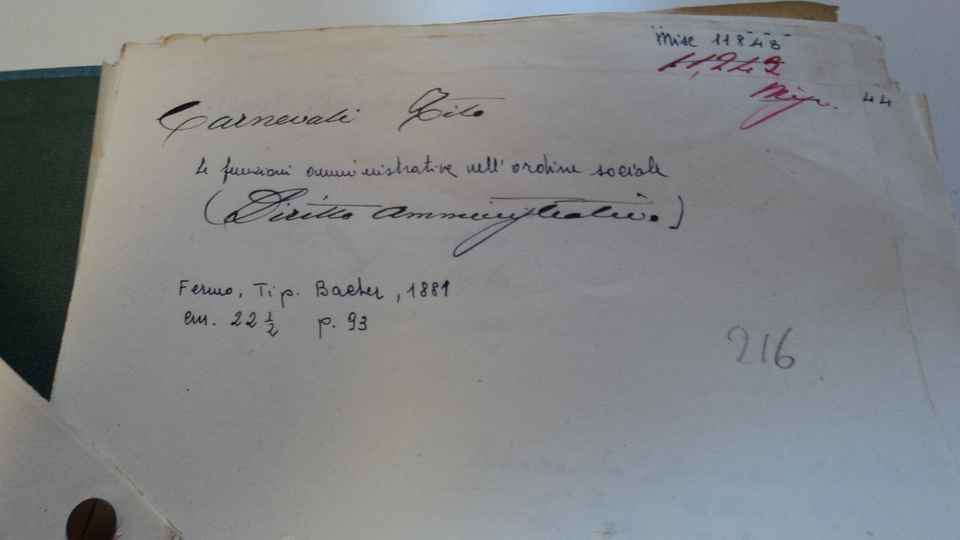 Misc 11843
11,242
Misc. 44
Carnevali Tito
Le funzioni amministrative nell'ordine sociale
(Diritto Amministrativo)
Fermo, Tip. Bacher, 1881
cm. 22 1/2 p. 93
216